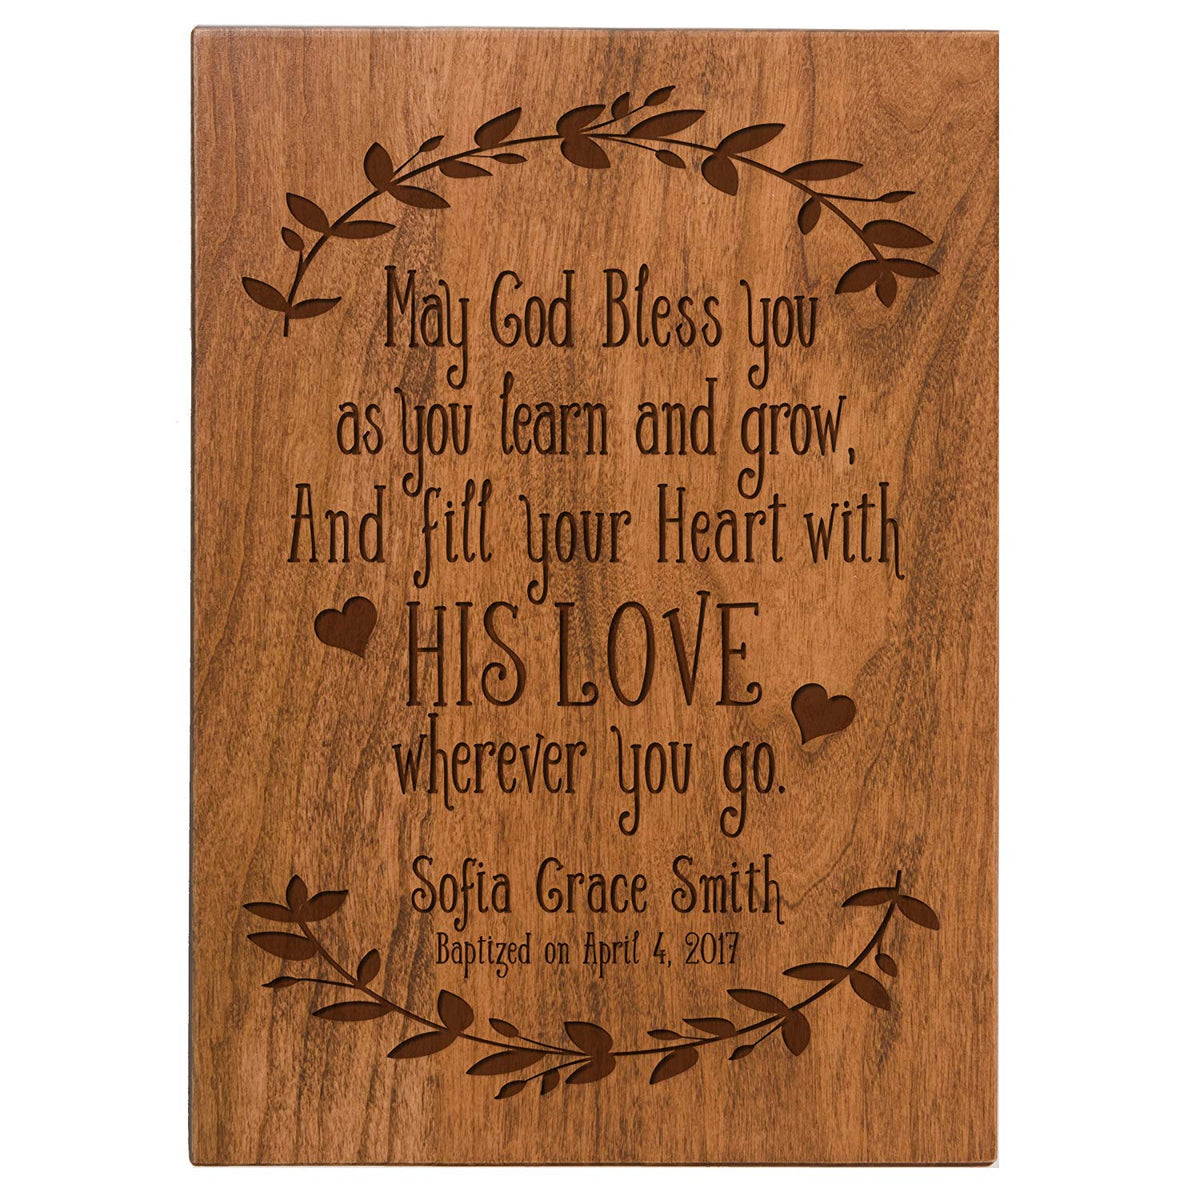 May God Bless you
as you learn and grow,
And fill your Heart with
HIS LOVE
wherever you go.
Sofia Grace Smith
Baptized on April 4, 2017